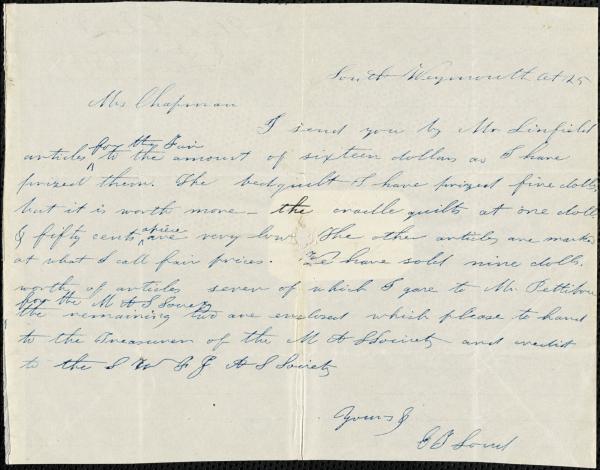 South Weymouth Oct 25
Mrs Chapman
I send you by Mr Linfield
for the Fair
articles to the amount of sixteen dollars as I have
prized them. The bedquilt I have prized five dolls,
but it is worth more – the cradle quilts at one doll
apiece
& fifty cents are very low. The other articles are marked
at what I call fair prices. We have sold nine dolls.
worth of articles seven of which I gave to Mr Pettibone
for the M A S Society
the remaining two are enclosed which please to hand
to the Treasurer of the M A S Society and credit
to the S W F A S Society
Yours &